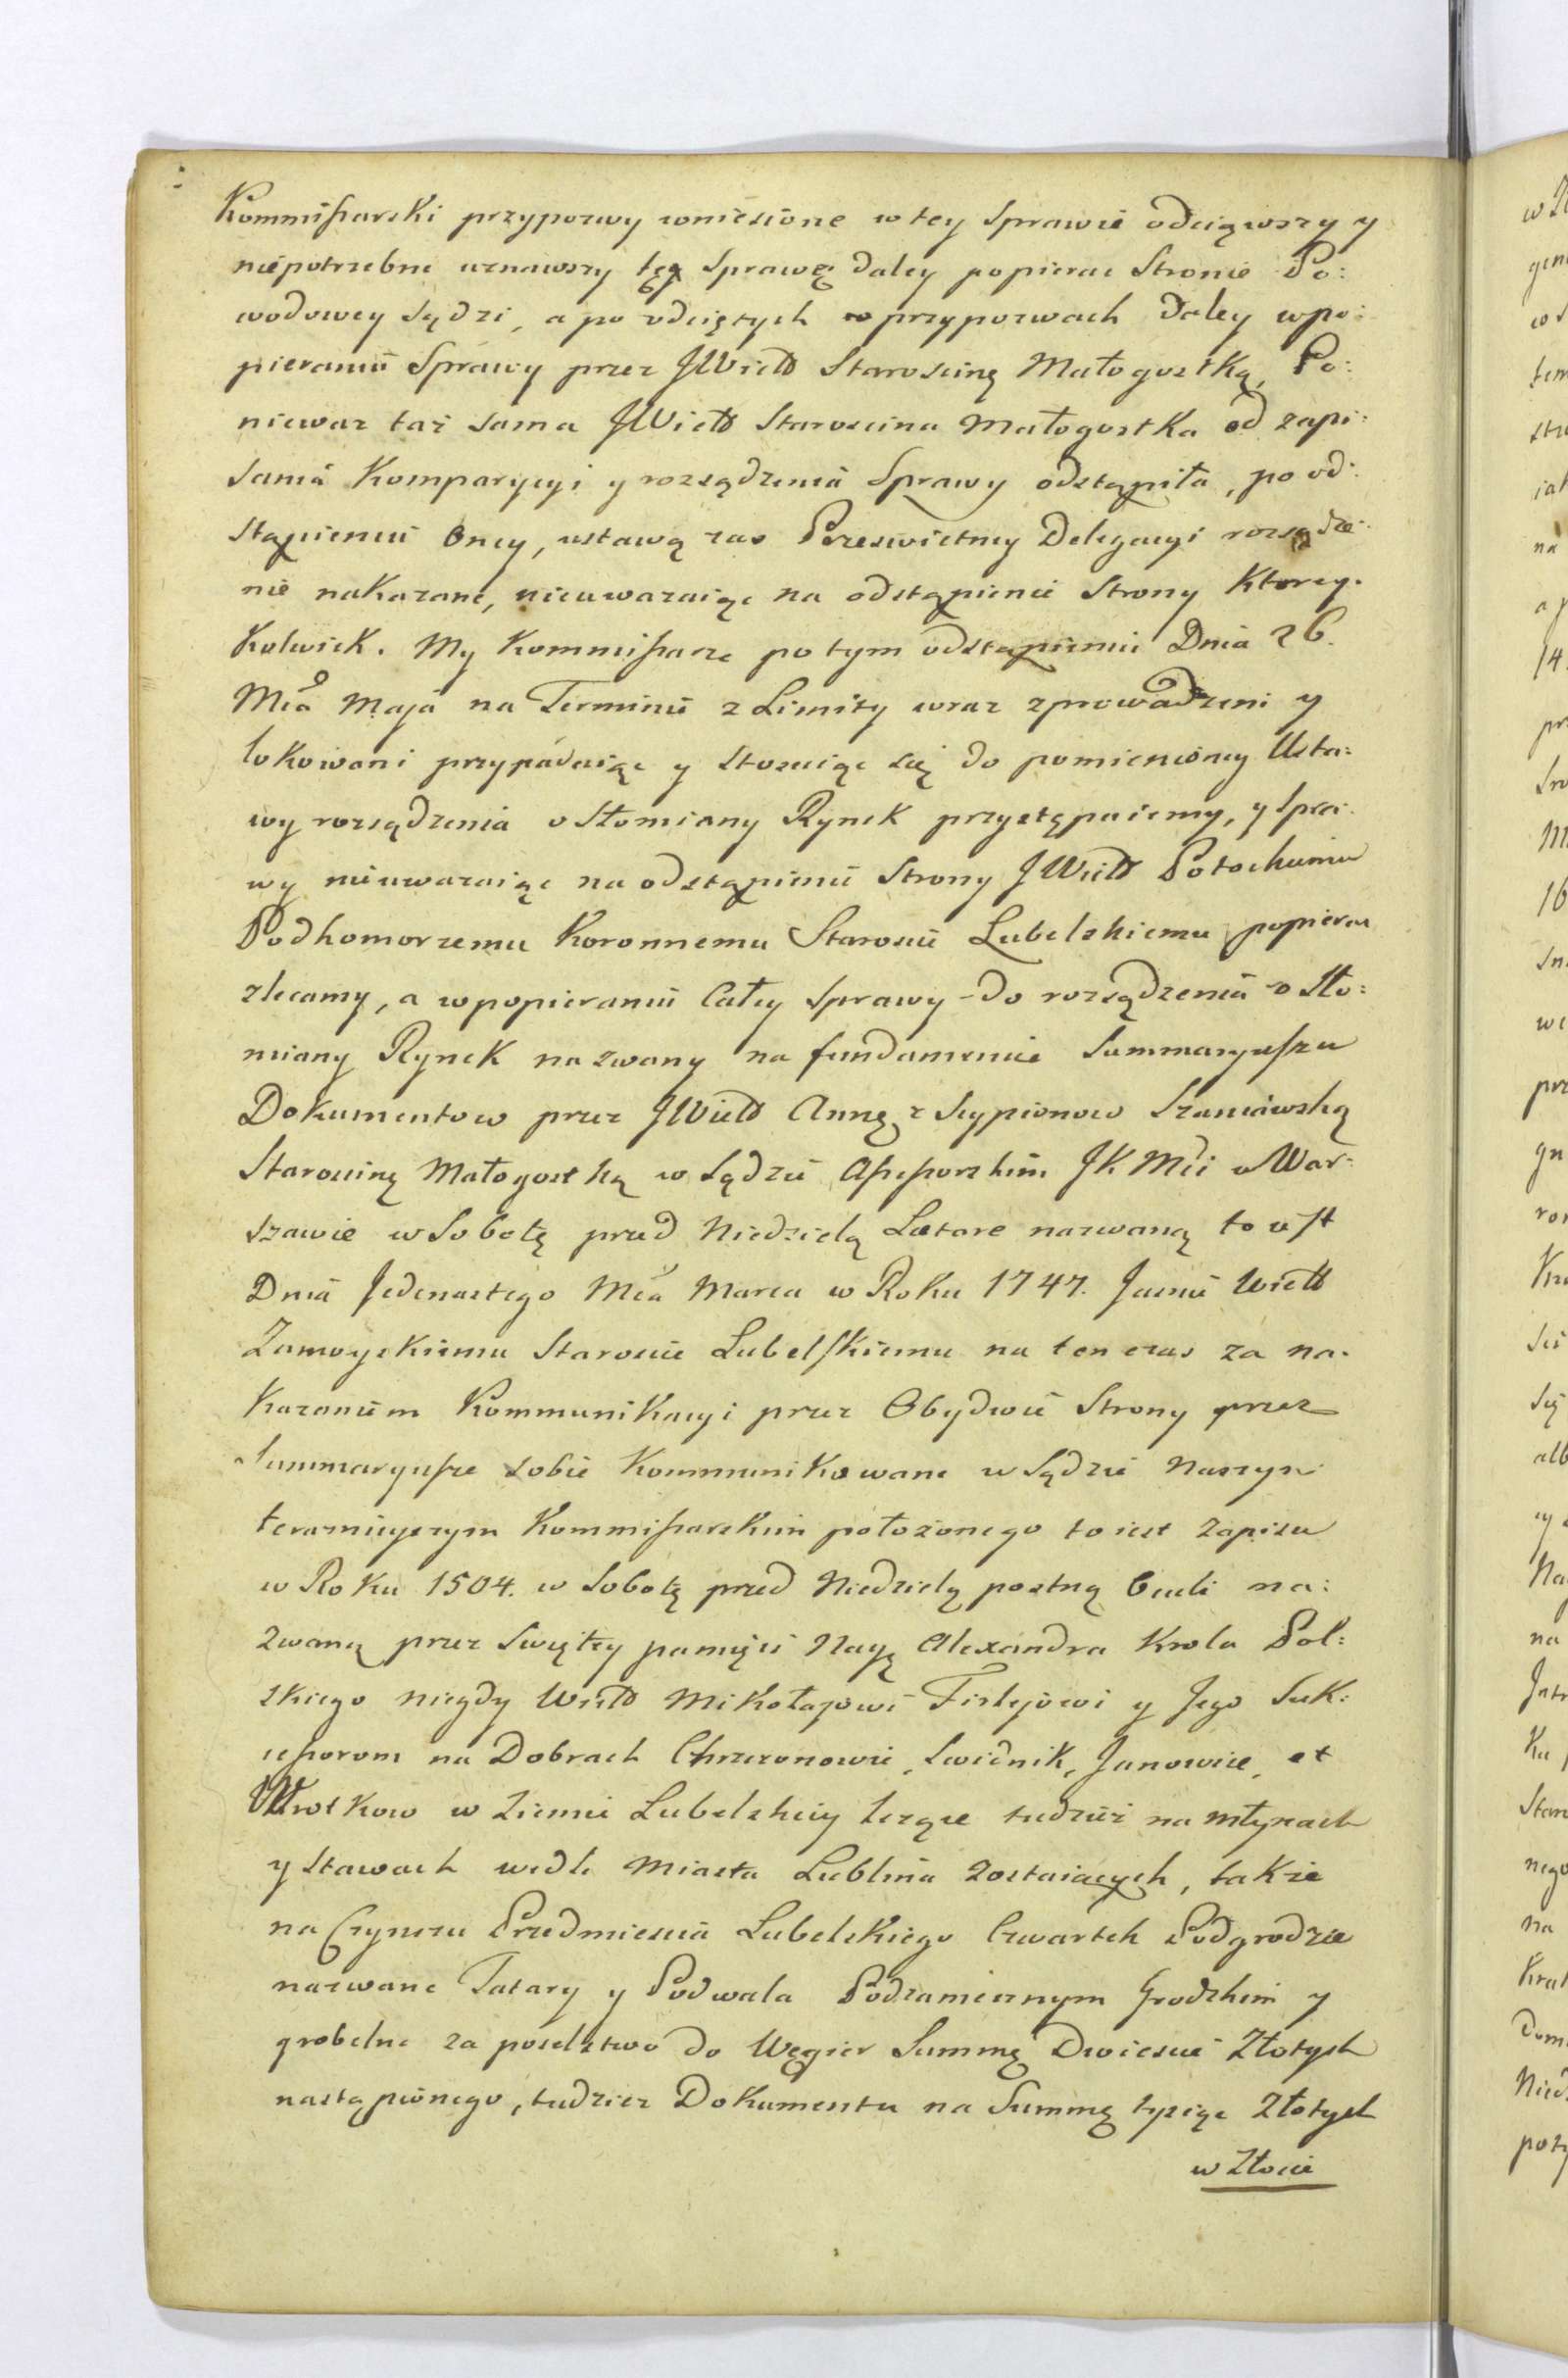 Kommissarski przypozwy wniesione w tey Sprawie odciąwszy y
niepotrzebne uznawszy tęż Sprawę daley popierac Stronie Po:
wodowey Sądzi, a po odciętych przypozwach daley w po:
pieraniu Sprawy przez JWield Starościnę Małogostką, Po:
niewaz taż sama JWield Starościna Małogostka od zapi:
sania Komparycyi y rozsądzenia Sprawy odstąpiła, po od:
stąpieniu Oney, ustawą zas Przeswietney Delegacyi rozsądze:
nie nakazane, nieuwazaiąc na odstąpienie Strony Ktorey:
kolwiek. My Kommissarze po tym odstąpieniu Dnia 26.
Mca Maja na Terminie z Limity wraz zprowadzeni y
lokowani przypadaiąc y stosuiąc się do pomienioney Usta:
wy rozsądzenia o Słomiany Rynek przystępuiemy, y Spra:
wy nieuwazaiąc na odstąpienie Strony JWield Potockiemu
Podkomorzemu Koronnemu Staroscie Lubelskiemu popierac
zlecamy, a w popieraniu Całey Sprawy do rozsądzenia o Sło:
miany Rynek nazwany na fundamencie Summaryusza
Dokumentow przez JWield Annę z Scypionow Szaniawską
Starościnę Małogostką w Sądzie Assessorskim JK Mci w War:
szawie w Sobotę przed Niedzielą Laetare nazwaną to iest
Dnia Jedenastego Mca Marca w Roku 1747. Jasnie Wield
Zamoyskiemu Staroscie Lubelskiemu na ten czas za na:
kazaniem Kommunikacyi przez Obydwie Strony przez
Summaryusze sobie Kommunikowane w Sądzie Naszym
teraznieyszym Kommissarskim położonego to iest Zapisu
w Roku 1504. w Sobotę przed Niedzielą postną Oculi na:
zwaną przez Swiętey pamięci Nayę Alexandra Krola Pol:
skiego niegdy Wield Mikołajowi Firlejowi y Jego Suk:
cessorom na Dobrach Chrzezonowie, Swidnik, Janowice, et
Wrotkow w Ziemi Lubelskiey lezące tudziez na młynach
y Stawach wedle Miasta Lublina zostaiących, takze
na Czynszu Przedmiescia Lubelskiego Czwartek Podgrodzie
nazwane Tatary y Podwala Podzamecznym Grodzkim y
grobelne za poselstwo do Węgier Summę Dwiescie Złotych
nastąpionego, tudziez Dokumentu na Summę tysiąc Złotych
w Złocie